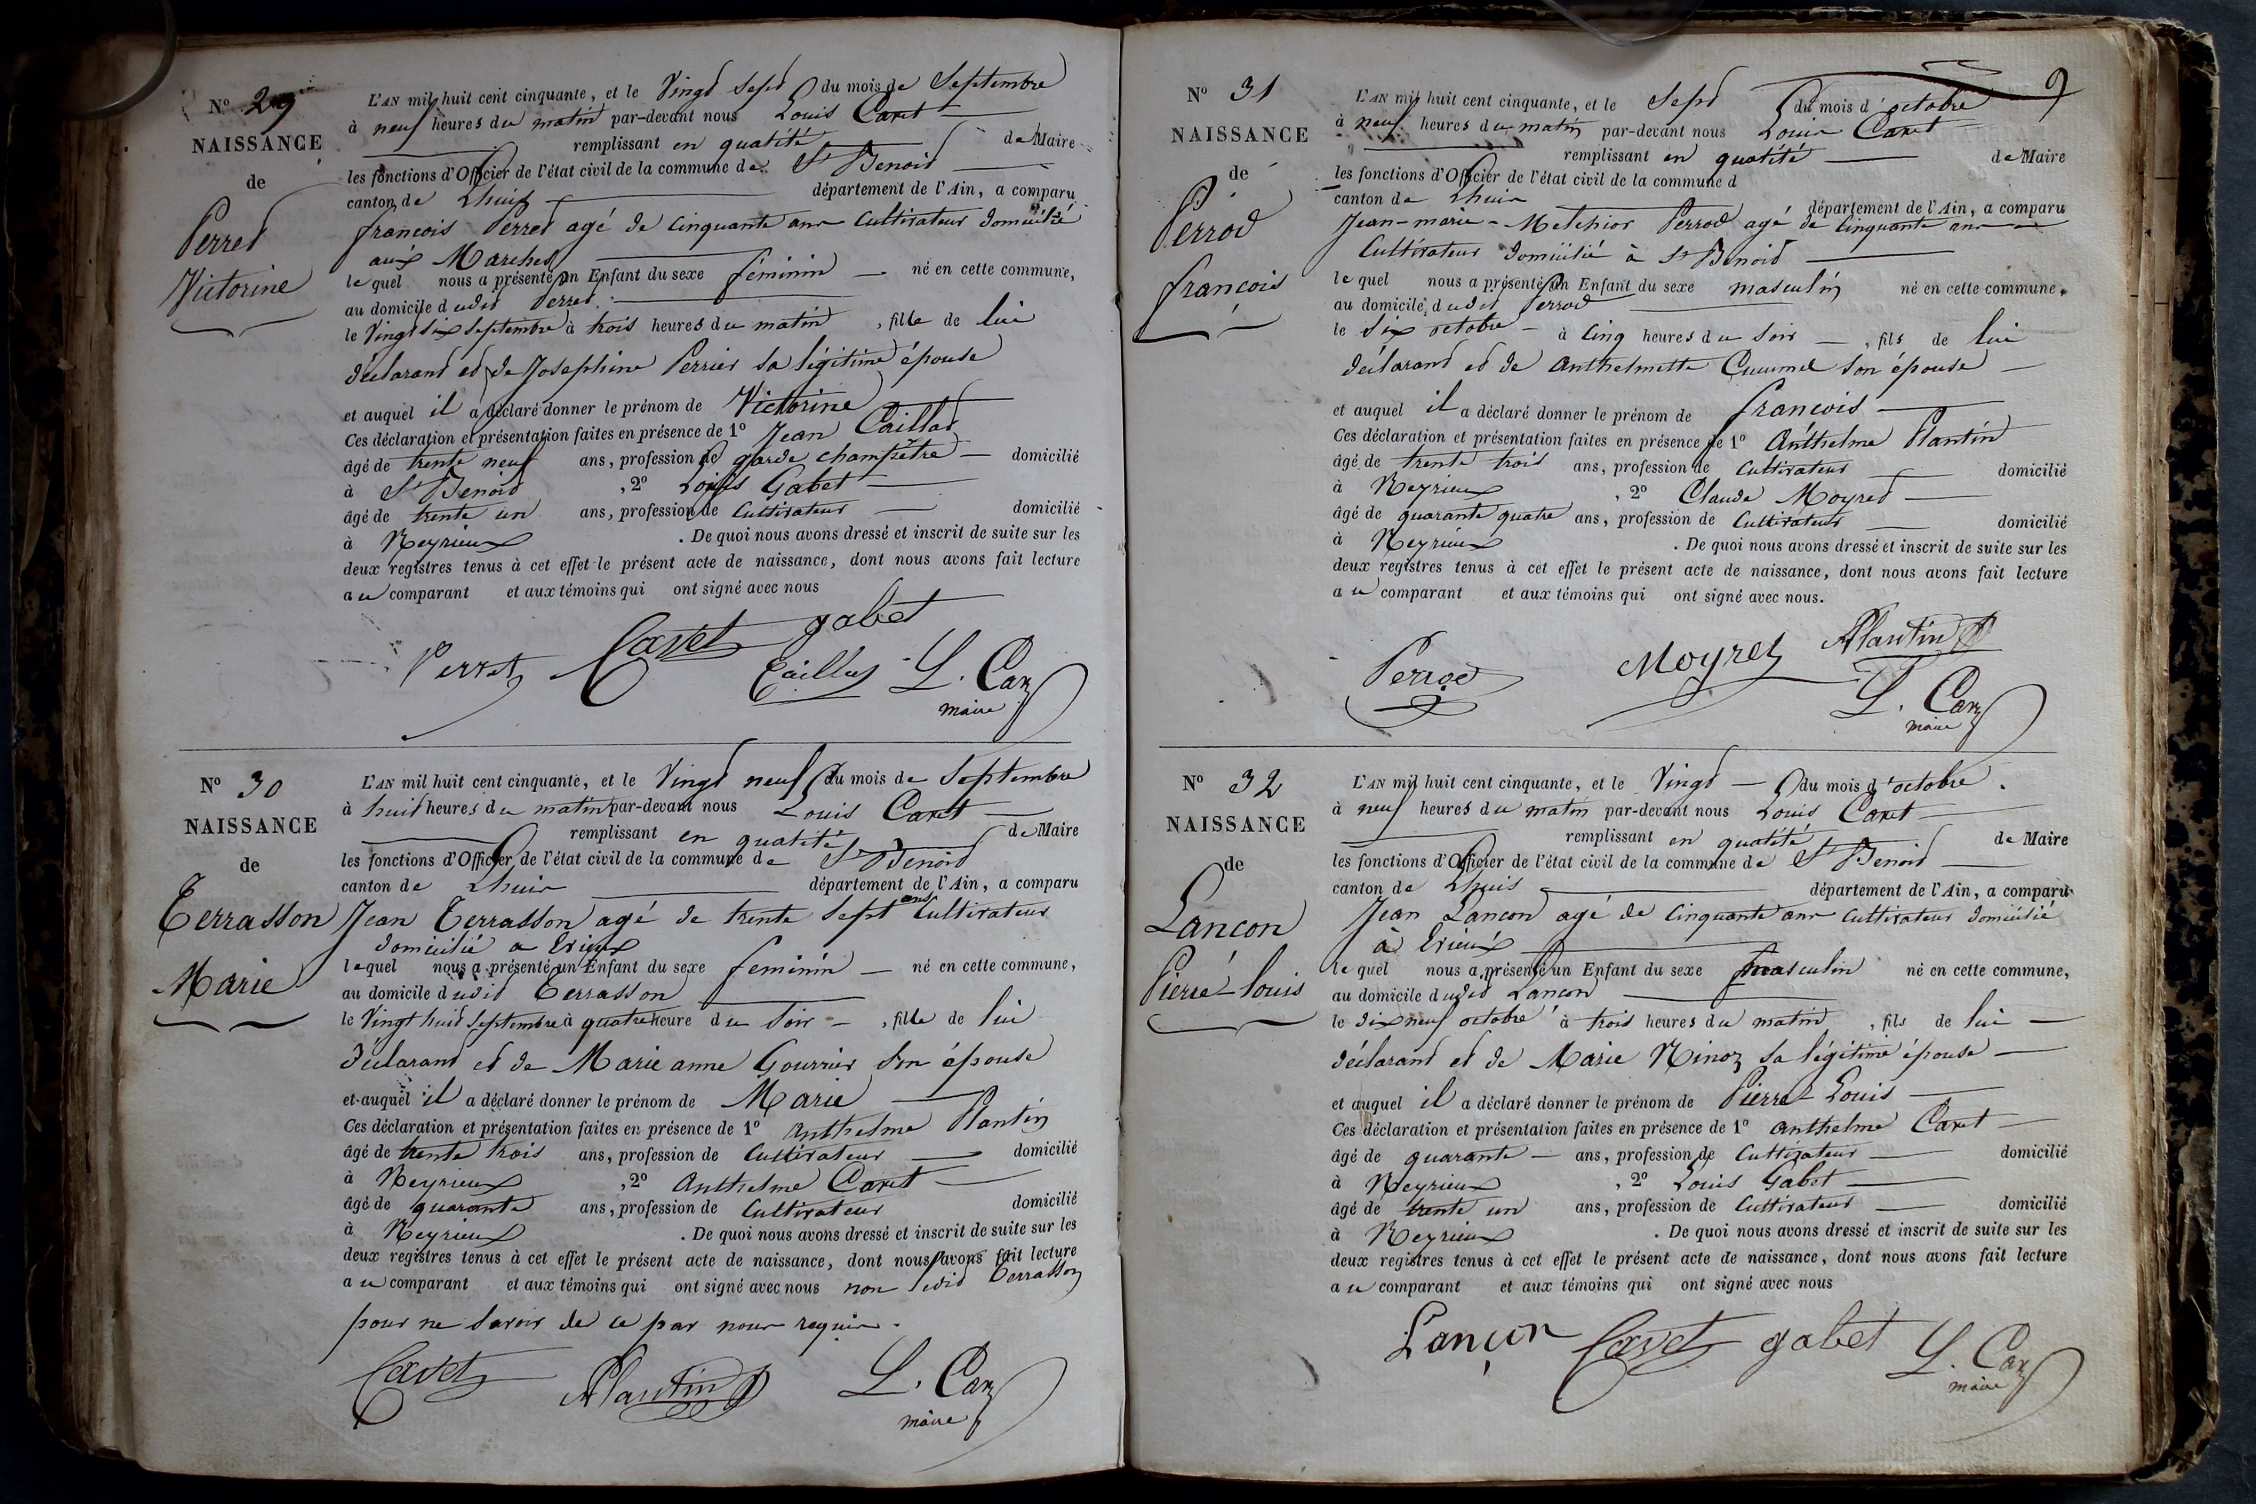 N° 29
NAISSANCE
de
Perret
Victorine
L'AN mil huit cent cinquante, et le Vingt Sept du mois de Septembre
à neuf heures du matin par-devant nous Louis Caret
remplissant en qualité de Maire
les fonctions d'Officier de l'état civil de la commune de St Benoit
canton de Lhuis département de l'Ain, a comparu
francois Perret agé de cinquante ans Cultivateur domicilié
aux Marches
le quel nous a présenté un Enfant du sexe féminin né en cette commune,
au domicile dudit Perret
le Vingt six septembre à trois heures du matin, fille de lui
déclarant et de Josephine Perrier sa légitime épouse
et auquel il a déclaré donner le prénom de Victorine
Ces déclaration et présentation faites en présence de 1° Jean Caillat
âgé de trente neuf ans, profession de garde champêtre domicilié
à St Benoit, 2° Louis Gabet
âgé de trente un ans, profession de Cultivateur domicilié
à Neyrieux. De quoi nous avons dressé et inscrit de suite sur les
deux registres tenus à cet effet le présent acte de naissance, dont nous avons fait lecture
au comparant et aux témoins qui ont signé avec nous
Perret Cavet gabet
Caillat L. Car
maire
N° 30
NAISSANCE
de
Terrasson
Marie
L'AN mil huit cent cinquante, et le Vingt neuf du mois de Septembre
à huit heures du matin par-devant nous Louis Caret
remplissant en qualité de Maire
les fonctions d'Officier de l'état civil de la commune de St Benoit
canton de Lhuis département de l'Ain, a comparu
Jean Terrasson agé de trente sept ans Cultivateur
domicilié a Evieux
lequel nous a présenté un Enfant du sexe féminin né en cette commune,
au domicile dudit Terrasson
le Vingt huit Septembre à quatre heure du Soir, fille de lui
déclarant et de Marie anne Gourrier son épouse
et auquel il a déclaré donner le prénom de Marie
Ces déclaration et présentation faites en présence de 1° Anthelme Plantin
âgé de trente trois ans, profession de Cultivateur domicilié
à Neyrieux, 2° Anthelme Caret
âgé de quarante ans, profession de Cultivateur domicilié
à Neyrieux. De quoi nous avons dressé et inscrit de suite sur les
deux registres tenus à cet effet le présent acte de naissance, dont nous avons fait lecture
au comparant et aux témoins qui ont signé avec nous non ledit Terrasson
pour ne savoir de ce par nous requis.
Cavet APlantin L. Car
maire
9
N° 31
NAISSANCE
de
Perrod
francois
L'AN mil huit cent cinquante, et le Sept du mois d'octobre
à neuf heures du matin par-devant nous Louis Caret
remplissant en qualité de Maire
les fonctions d'Officier de l'état civil de la commune d
canton de Lhuis département de l'Ain, a comparu
Jean-marie-Melchior Perrod agé de cinquante ans
Cultivateur domicilié à St Benoit
le quel nous a présenté un Enfant du sexe masculin né en cette commune,
au domicile dudit Perrod
le six octobre à cinq heures du soir, fils de lui
déclarant et de Anthelmette son épouse
et auquel il a déclaré donner le prénom de francois
Ces déclaration et présentation faites en présence de 1° Anthelme Plantin
âgé de trente trois ans, profession de Cultivateur domicilié
à Neyrieux, 2° Claude Moyret
âgé de quarante quatre ans, profession de Cultivateur domicilié
à Neyrieux. De quoi nous avons dressé et inscrit de suite sur les
deux registres tenus à cet effet le présent acte de naissance, dont nous avons fait lecture
au comparant et aux témoins qui ont signé avec nous.
Perrod Moyret APlantin
L. Car
maire
N° 32
NAISSANCE
de
Lancon
Pierre-louis
L'AN mil huit cent cinquante, et le Vingt du mois d'octobre.
à neuf heures du matin par-devant nous Louis Caret
remplissant en qualité de Maire
les fonctions d'Officier de l'état civil de la commune de St Benoit
canton de Lhuis département de l'Ain, a comparu
Jean Lancon agé de cinquante ans cultivateur domicilié
à Evieux
le quel nous a présenté un Enfant du sexe masculin né en cette commune,
au domicile dudit Lancon
le dix neuf octobre à trois heures du matin, fils de lui
déclarant et de Marie Ninoz sa légitime épouse
et auquel il a déclaré donner le prénom de Pierre-Louis
Ces déclaration et présentation faites en présence de 1° Anthelme Caret
âgé de quarante ans, profession de Cultivateur domicilié
à Neyrieux, 2° Louis Gabet
âgé de trente un ans, profession de Cultivateur domicilié
à Neyrieux. De quoi nous avons dressé et inscrit de suite sur les
deux registres tenus à cet effet le présent acte de naissance, dont nous avons fait lecture
au comparant et aux témoins qui ont signé avec nous
Lançon Cavet gabet L. Car
maire